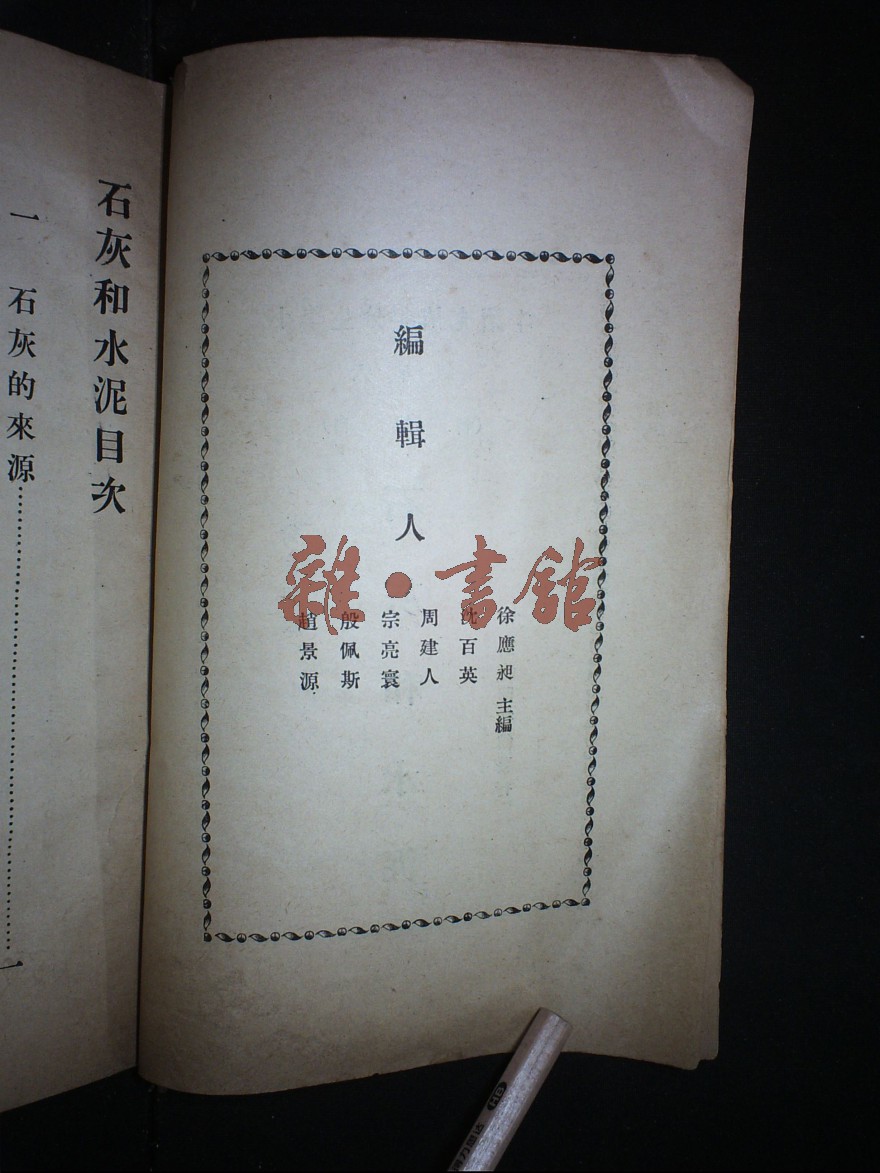 編輯人
徐應昶 主編
沈百英
周建人
宗亮寰
殷佩斯
趙景源
石灰和水泥目次
一 石灰的來源……一
雜·書館
HB